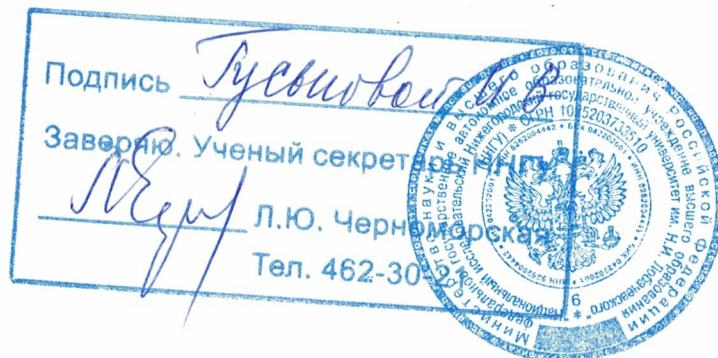 Подпись Гусыновой И В
Заверяю. Ученый секретарь ННГУ
Л.Ю. Черноморская
Тел. 462-30-21
Министерство науки и высшего образования Российской Федерации
федеральное государственное автономное образовательное учреждение высшего образования
"Национальный исследовательский Нижегородский государственный университет им. Н.И. Лобачевского"
(ННГУ) * ОГРН 1025203733510
6